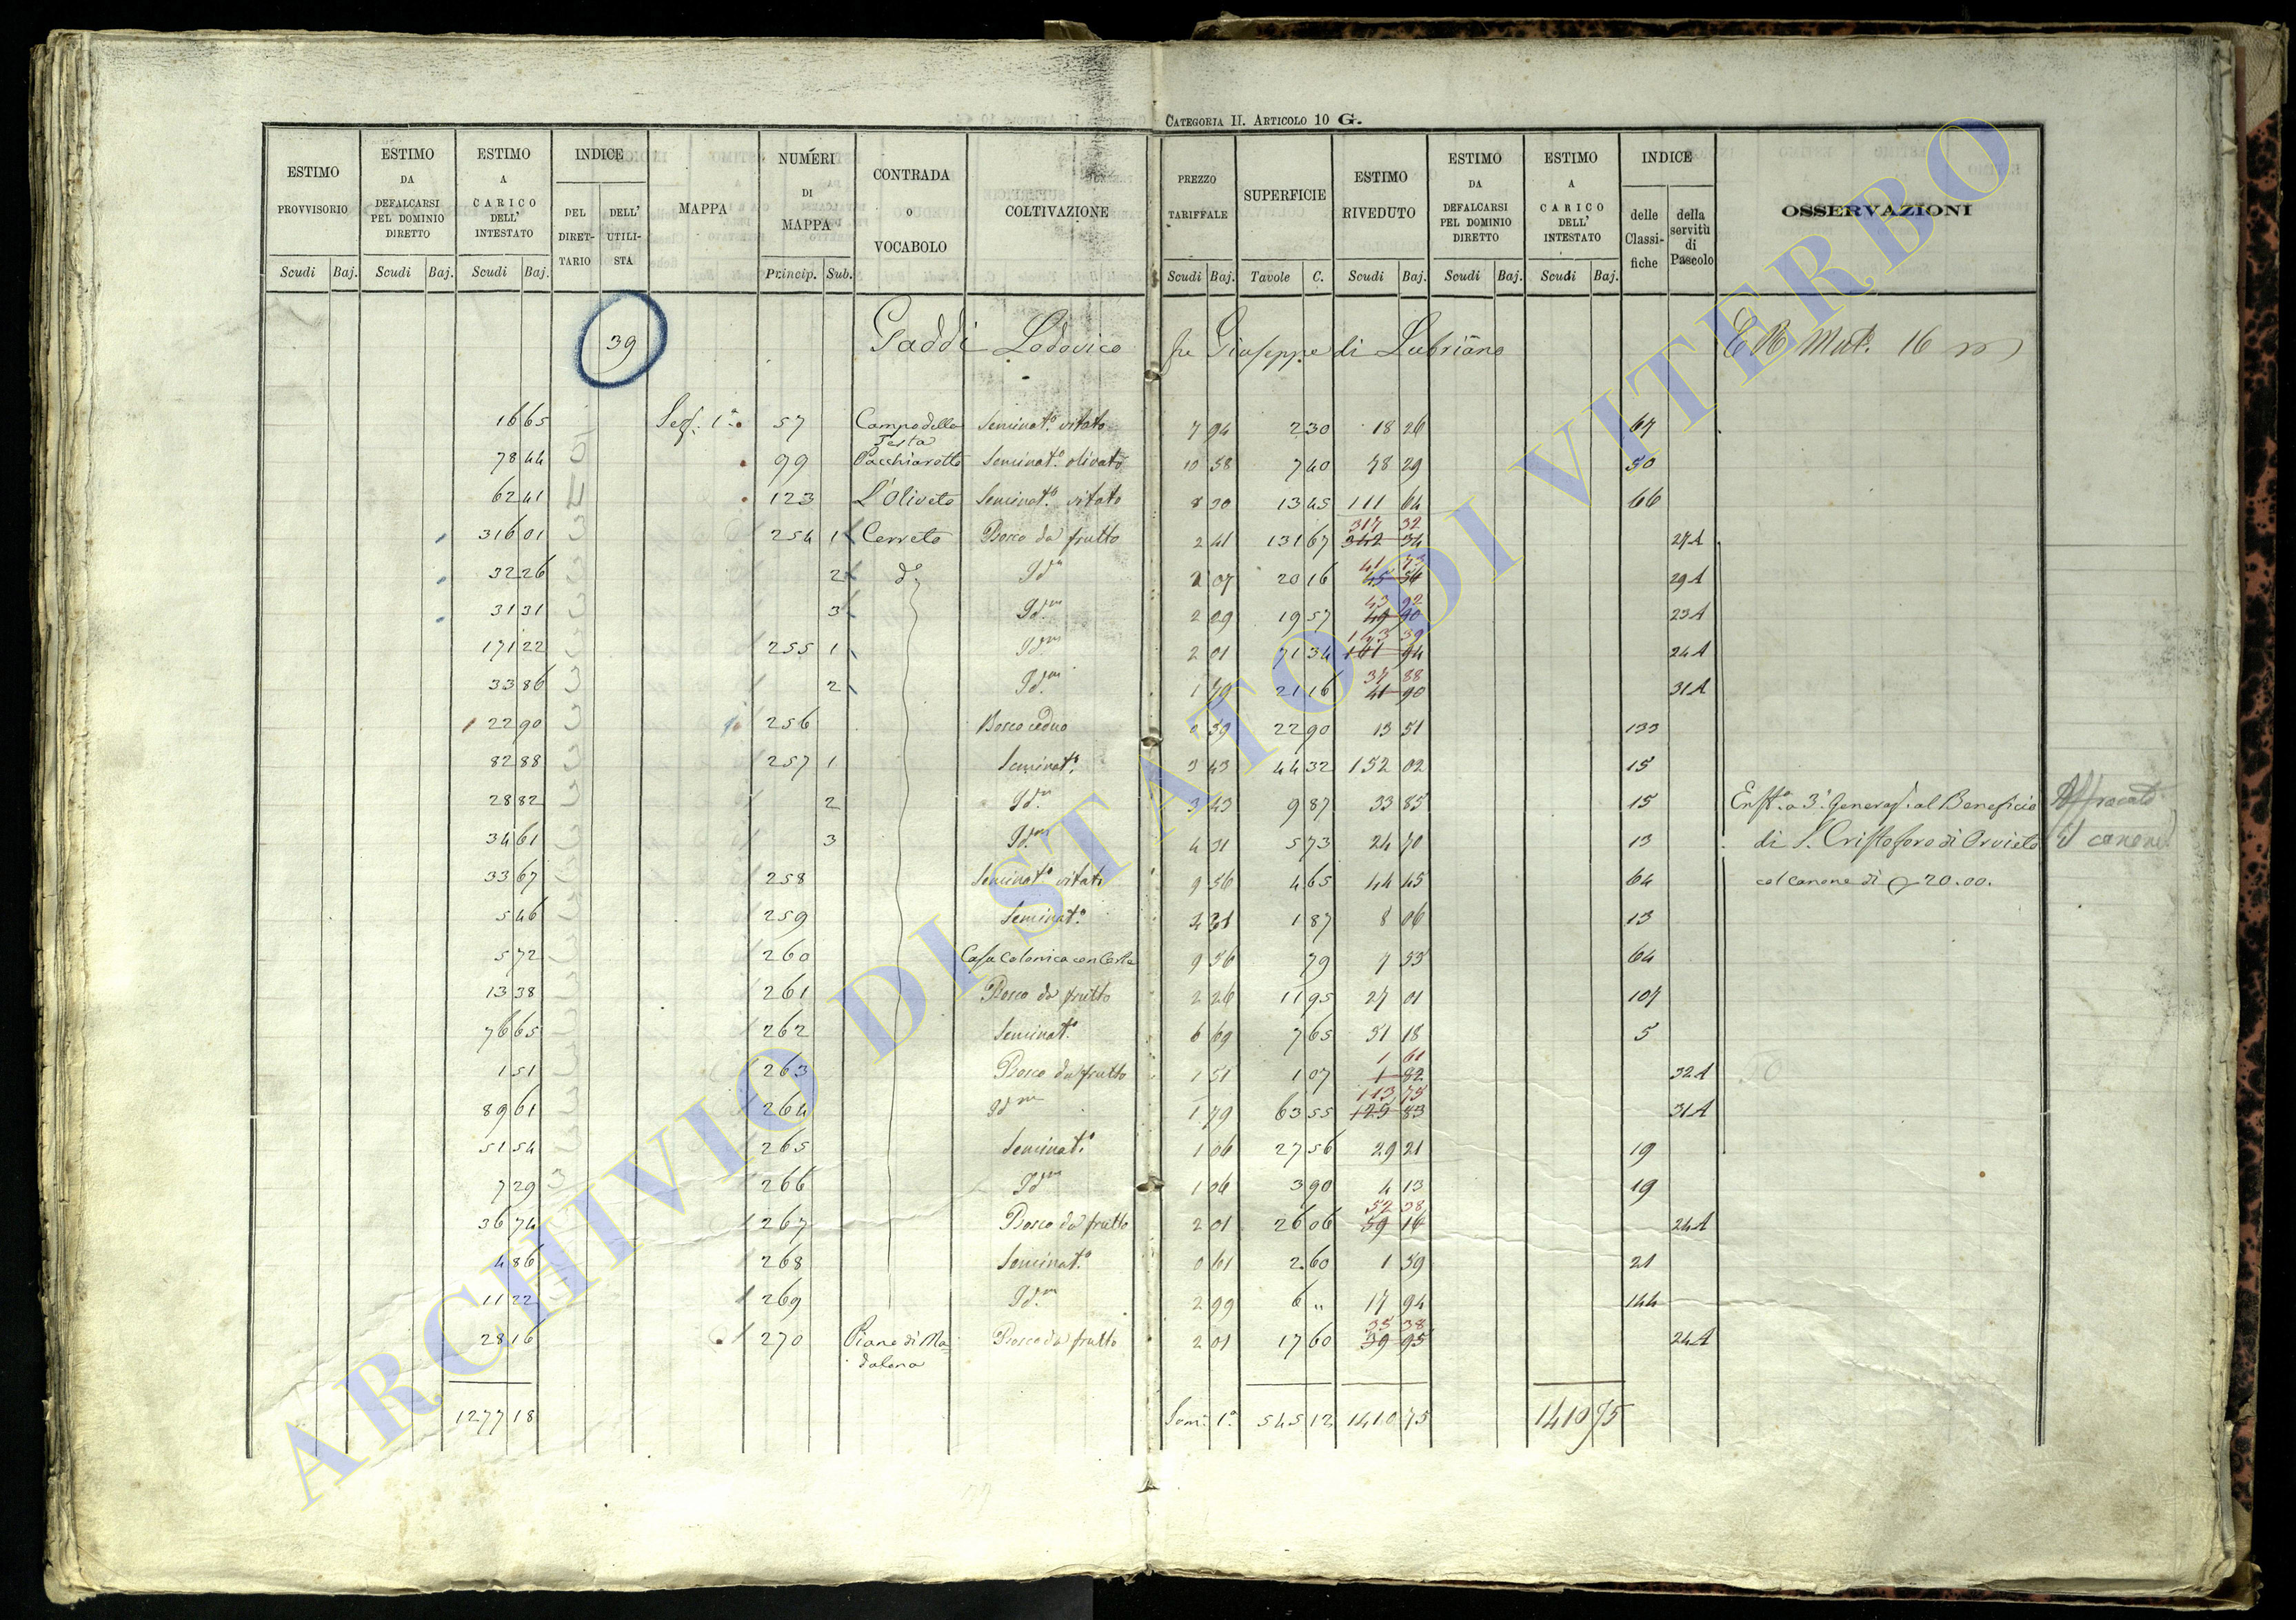 CATEGORIA II. ARTICOLO 10 G.
ESTIMO PROVVISORIO | ESTIMO DA DEFALCARSI PEL DOMINIO DIRETTO | ESTIMO A CARICO DELL' INTESTATO | INDICE | MAPPA | NUMERI DI MAPPA | CONTRADA o VOCABOLO | COLTIVAZIONE | PREZZO TARIFFALE | SUPERFICIE | ESTIMO RIVEDUTO | ESTIMO DA DEFALCARSI PEL DOMINIO DIRETTO | ESTIMO A CARICO DELL' INTESTATO | INDICE | OSSERVAZIONI
DEL DIRET-TARIO | DELL' UTILI-STA | delle Classi-fiche | della servitù di Pascolo
Scudi Baj. | Scudi Baj. | Scudi Baj. | Princip. Sub. | Scudi Baj. | Tavole C. | Scudi Baj. | Scudi Baj. | Scudi Baj.
39 Gaddi Lodovico fu Giuseppe di Lubriano 16
16 65 Sez. 1ª 57 Campo della Testa Seminat.º vitato 7 94 2 30 18 26 67
78 44 99 Pacchiarotto Seminat.º olivato 10 58 7 40 78 29 50
62 41 123 L'Oliveto Seminat.º vitato 8 30 13 45 111 64 66
316 01 254 1 Cerreto Bosco da frutto 2 41 131 67 317 32 342 34 27 A
32 26 2 dº Idm 2 07 20 16 41 73 45 54 29 A
31 31 3 Idm 2 29 19 57 43 92 49 90 23 A
171 22 255 1 Idm 2 01 71 34 143 39 161 94 24 A
33 86 2 Idm 1 79 21 16 37 88 41 90 31 A
22 90 256 Bosco ceduo 0 59 22 90 13 51 133
82 88 257 1 Seminat.º 3 43 44 32 152 02 15
28 82 2 Idm 3 43 9 87 33 85 15 Enft.ª a 3ª generaz. al Beneficio Affrancato
34 61 3 Idm 4 31 5 73 24 70 13 di S. Cristoforo di Orvieto il canone
33 67 258 Seminat.º vitato 9 56 4 65 44 45 64 col canone di 20.00.
5 46 259 Seminat.º 4 31 1 87 8 06 13
5 72 260 Casa Colonica con Corte 9 56 79 7 55 64
13 38 261 Bosco da frutto 2 26 11 95 27 01 107
76 65 262 Seminat.º 6 69 7 65 51 18 5
1 51 263 Bosco da frutto 1 51 1 07 1 61 1 82 32 A
89 61 264 Idm 1 79 63 55 113 75 125 83 31 A
51 54 265 Seminat.º 1 06 27 56 29 21 19
7 29 266 Idm 1 06 3 90 4 13 19
36 74 267 Bosco da frutto 2 01 26 06 52 38 59 16 24 A
4 86 268 Seminat.º 0 61 2 60 1 59 21
11 22 269 Idm 2 99 6 „ 17 94 144
28 16 270 Piano di Madalena Bosco da frutto 2 01 17 60 35 38 39 95 24 A
1277 18 Som. 1ª 545 12 1410 75 1410 75
ARCHIVIO DI STATO DI VITERBO